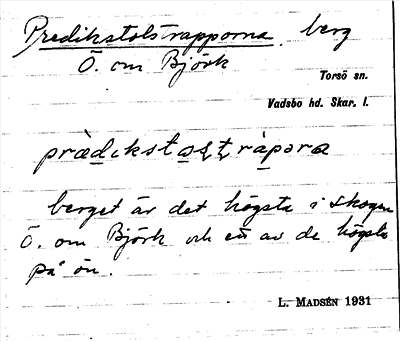 Predikstolstrapporna, berg
Ö. om Björk
Torsö sn.
Vadsbo hd. Skar. l.
berget är det högsta i skogen
Ö. om Björk och ett av de högsta
på ön.
L. Madsén 1931